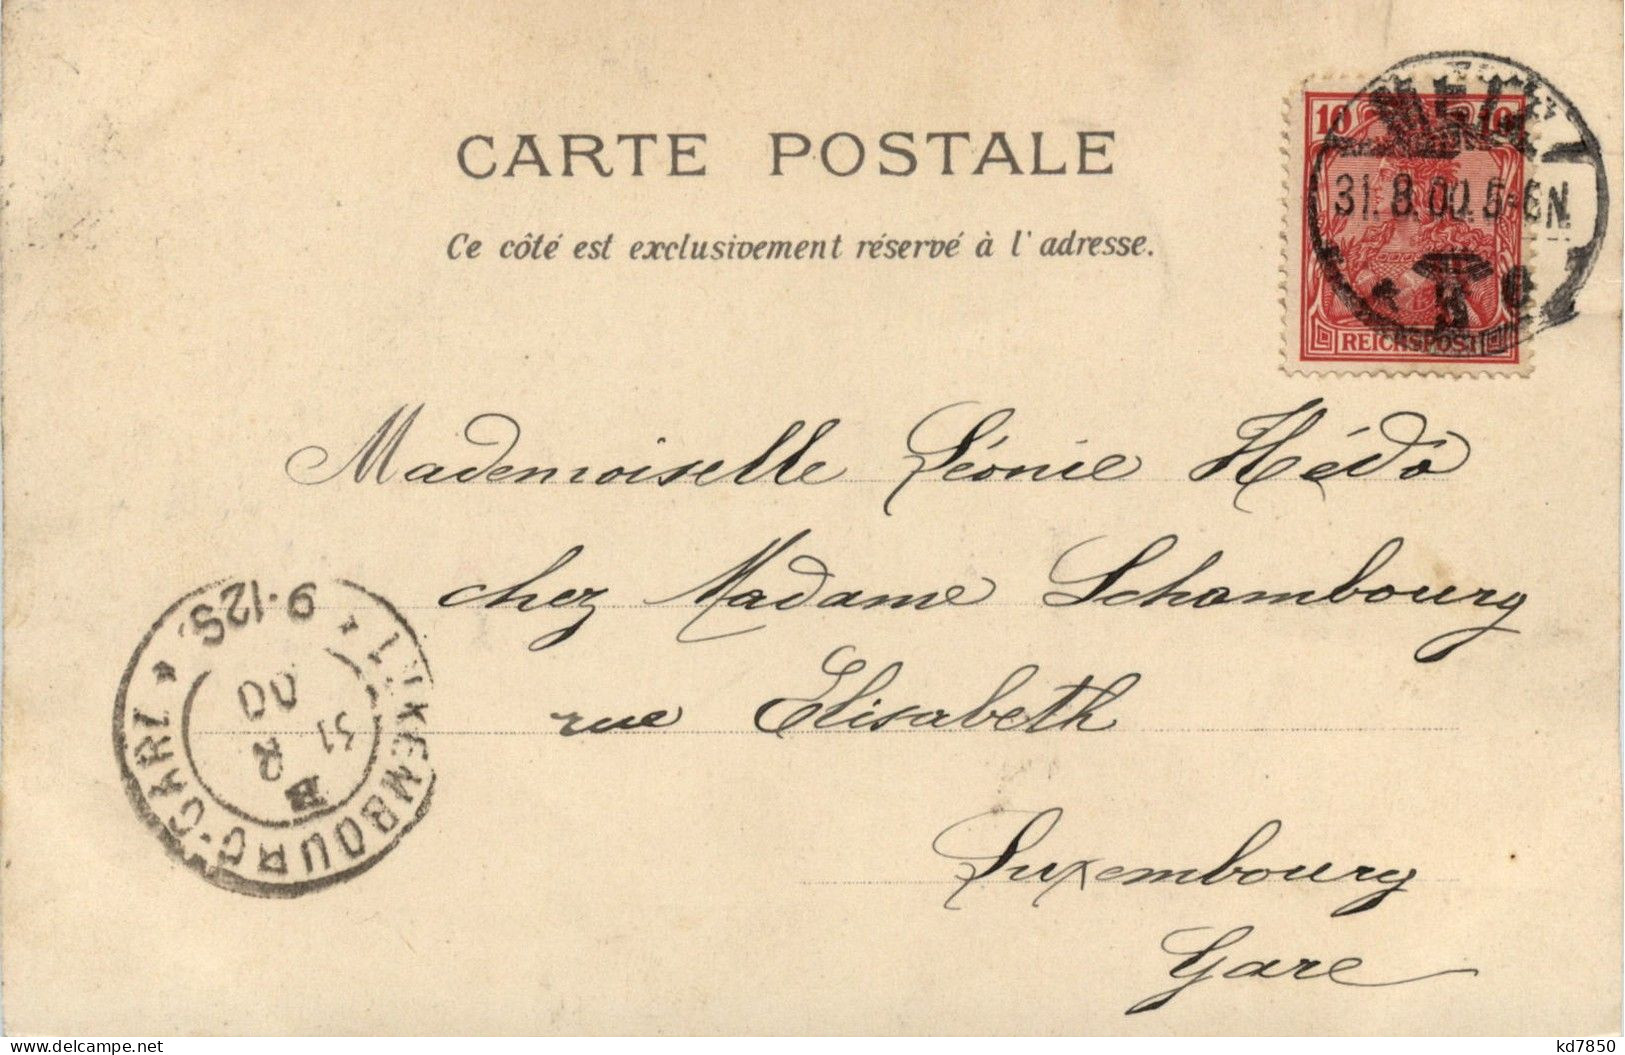 CARTE POSTALE
Ce côté est exclusivement réservé à l'adresse.
10 10
31.8.00.5-6N.
REICHSPOST
Mademoiselle Léonie Hédo
chez Madame Schambourg
rue Elisabeth
Luxembourg
Gare
LUXEMBOURG-GARE
9-12S.
31
8
00
kd7850